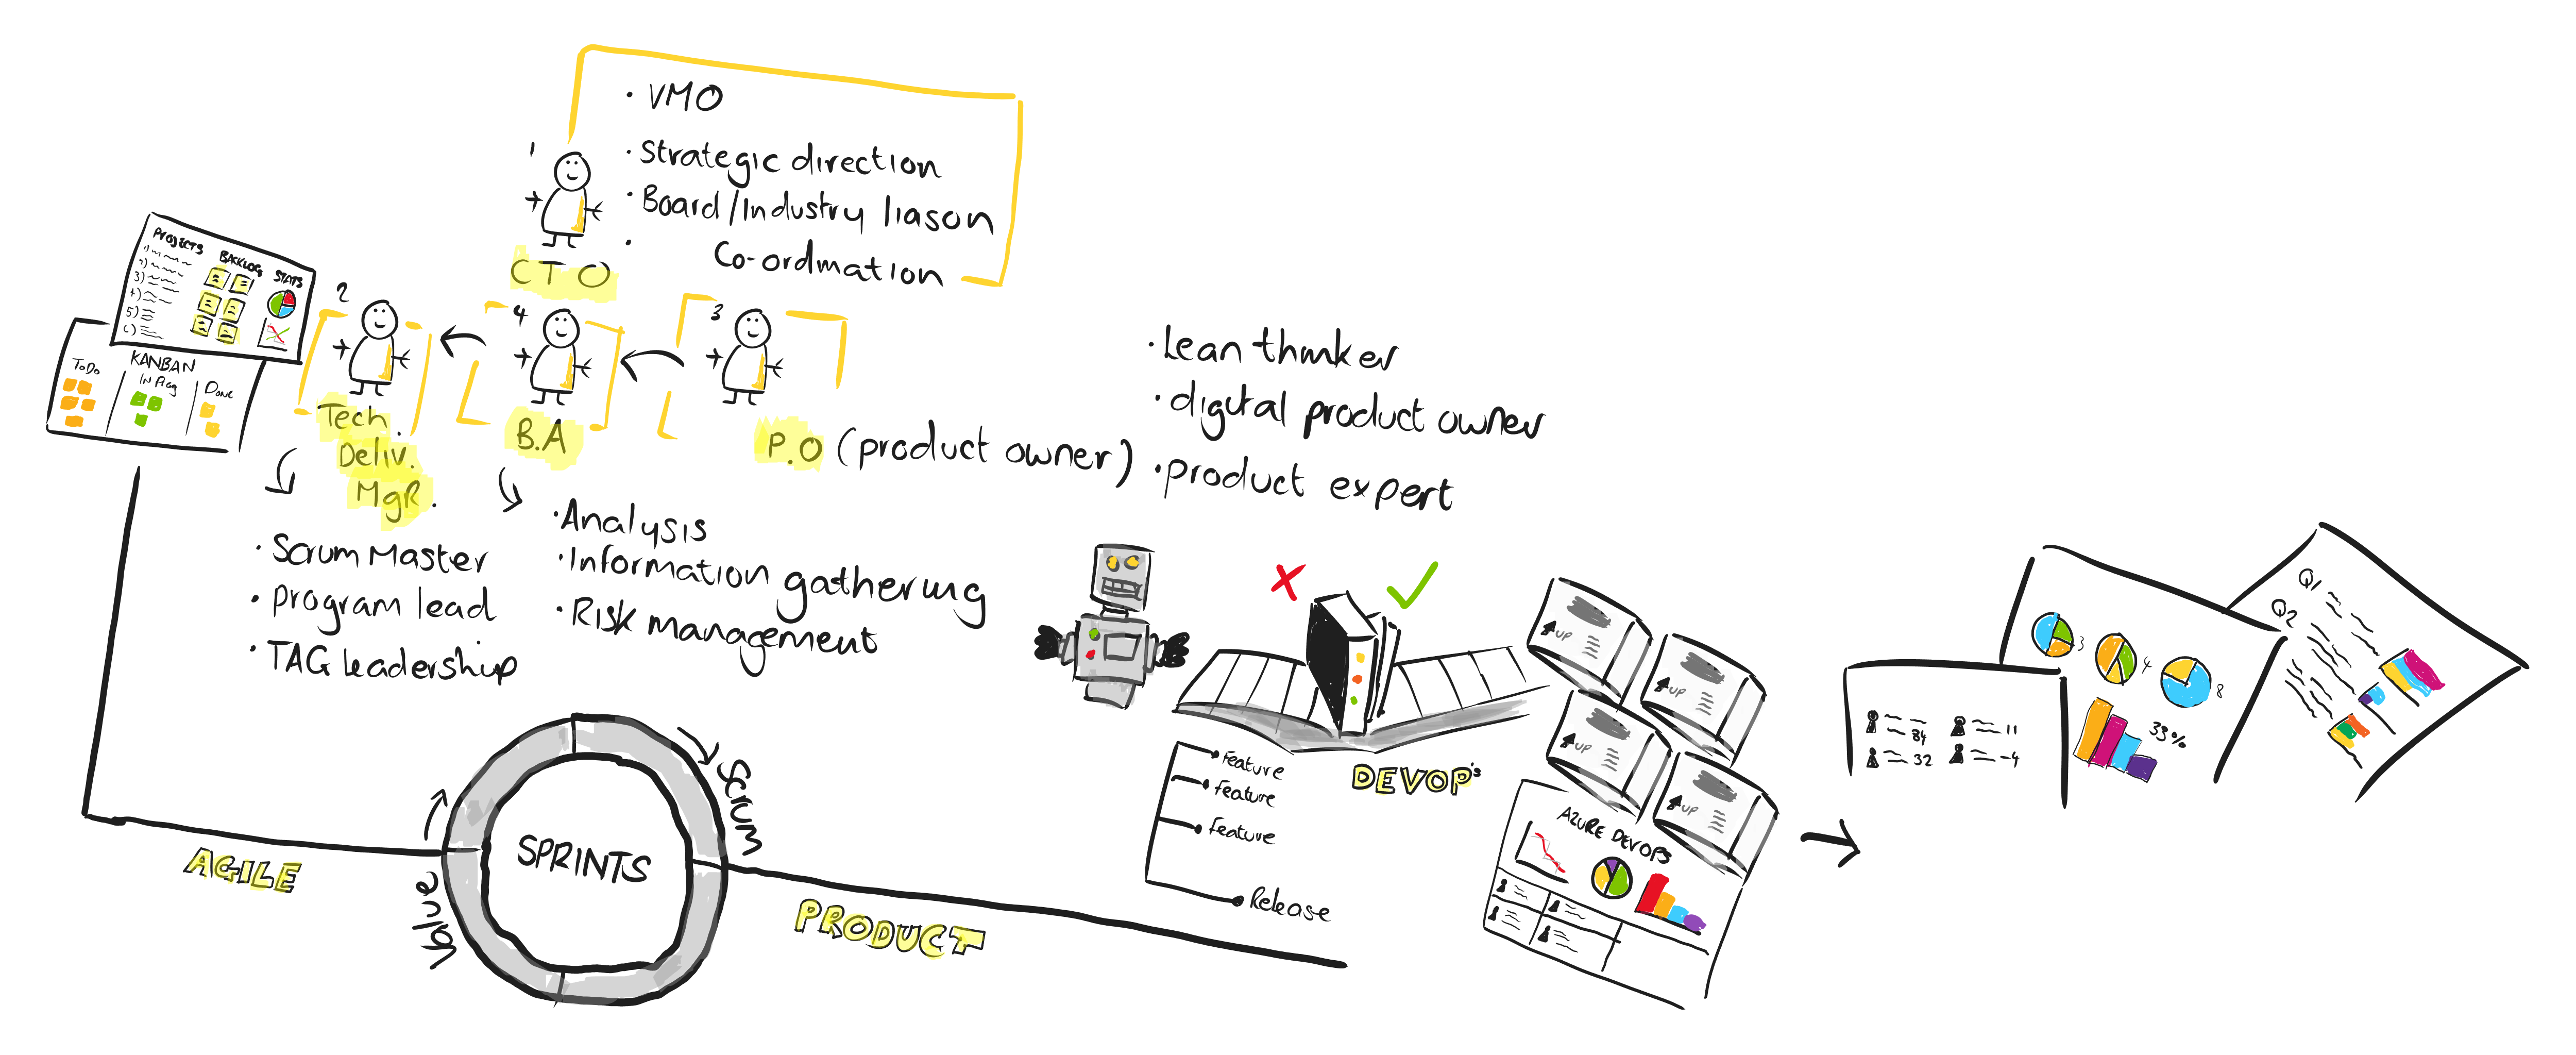 • VMO
• Strategic direction
• Board/Industry liason
• Co-ordination
1
CTO
PROJECTS
1)
2)
3)
4)
5)
6)
BACKLOG
STATS
KANBAN
ToDo
IN Prog
Done
2
Tech.
Deliv.
MgR.
4
B.A
3
P.O (product owner)
• Lean thinker
• digital product owner
• product expert
• Scrum Master
• program lead
• TAG leadership
• Analysis
• Information gathering
• Risk management
SPRINTS
Scrum
Value
AGILE
PRODUCT
Feature
Feature
Feature
Release
DEVOP's
UP
UP
UP
UP
AZURE DEVOPS
84
11
32
-4
3
4
8
33%
Q1
Q2